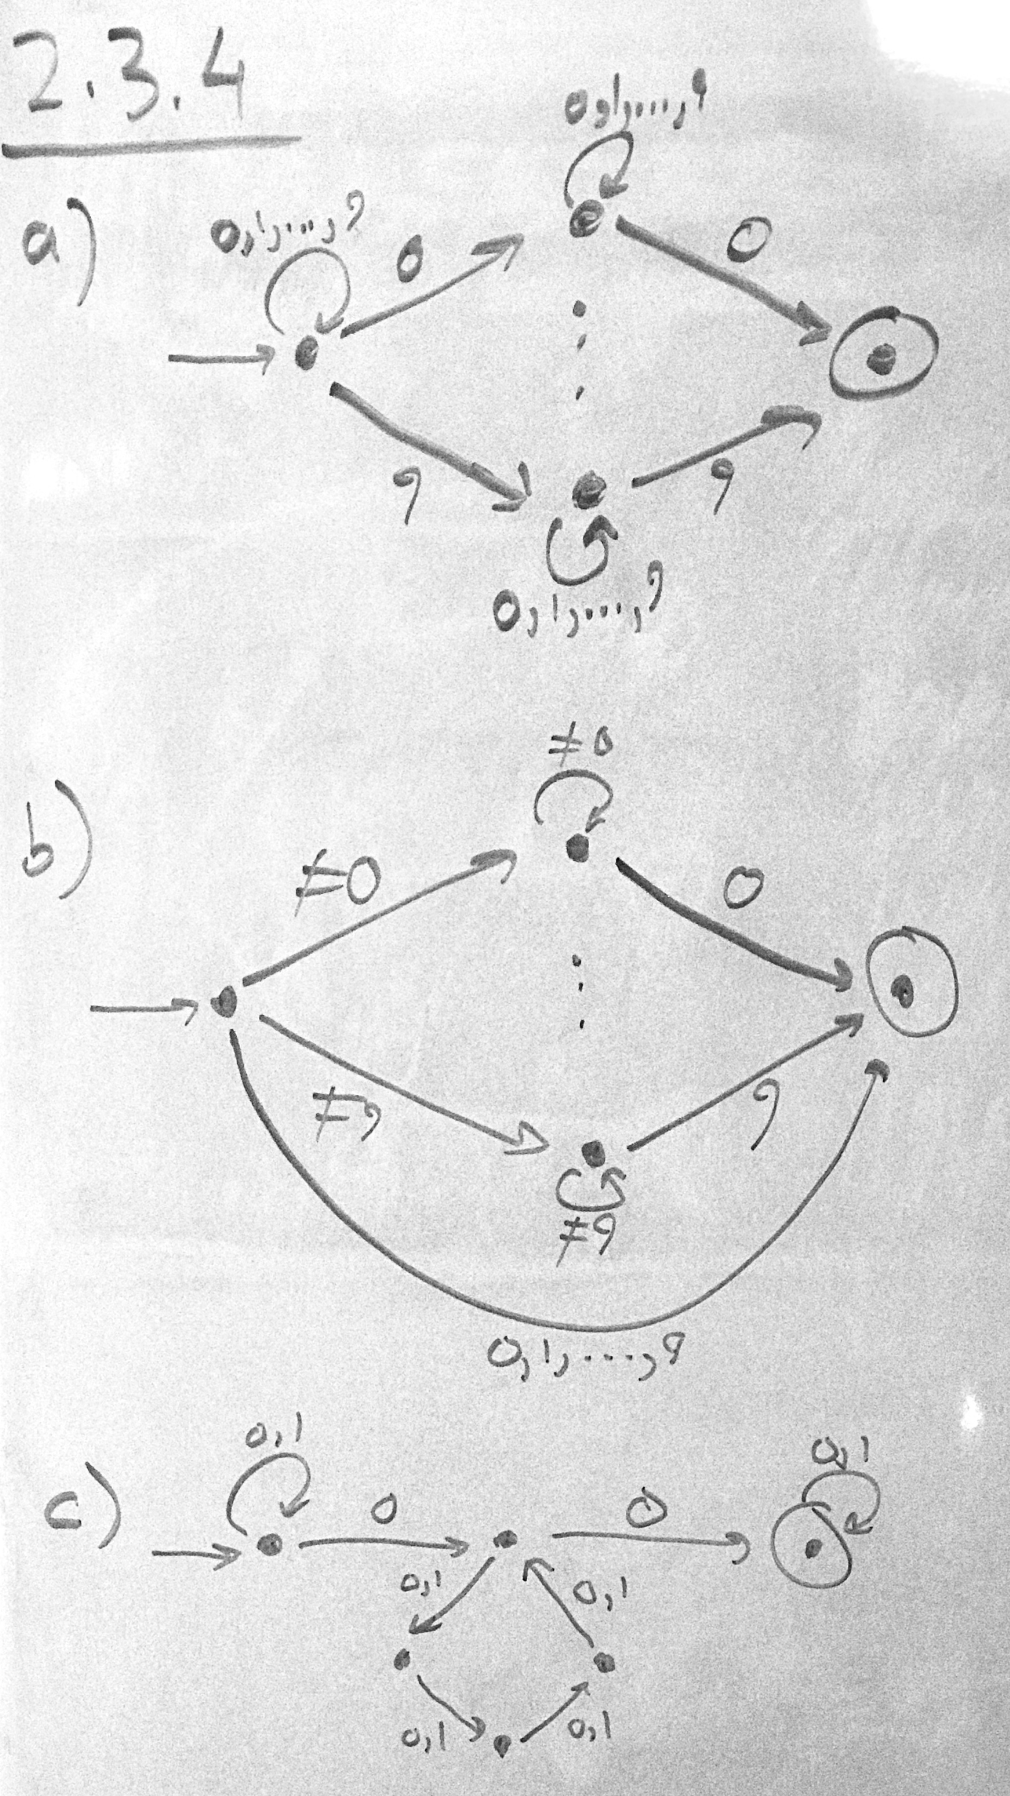 2.3.4
a)
0,1,...,9
0,1,...,9
0
0
9
9
0,1,...,9
b)
≠0
≠0
0
≠9
9
≠9
0,1,...,9
c)
0,1
0,1
0
0
0,1
0,1
0,1
0,1